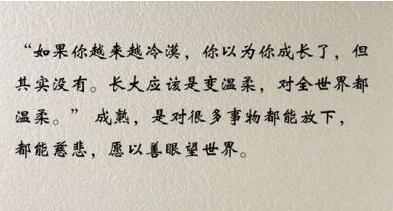 “如果你越来越冷漠，你以为你成长了，但
其实没有。长大应该是变温柔，对全世界都
温柔。” 成熟，是对很多事物都能放下，
都能慈悲，愿以善眼望世界。